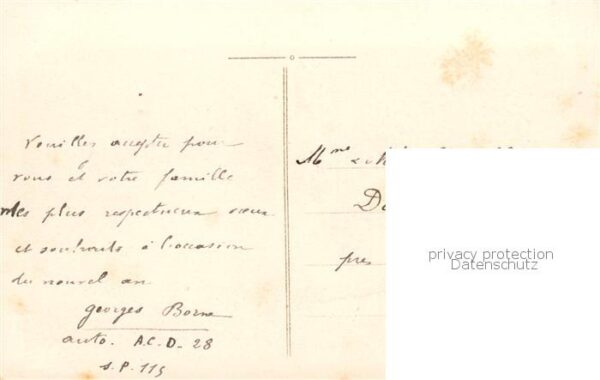 Veuillez accepter pour
vous et votre famille
mes plus respectueux vœux
et souhaits à l'occasion
du nouvel an
georges Borne
auto. A.C.D. 28
S.P. 115
Mme & M
D
près
privacy protection
Datenschutz